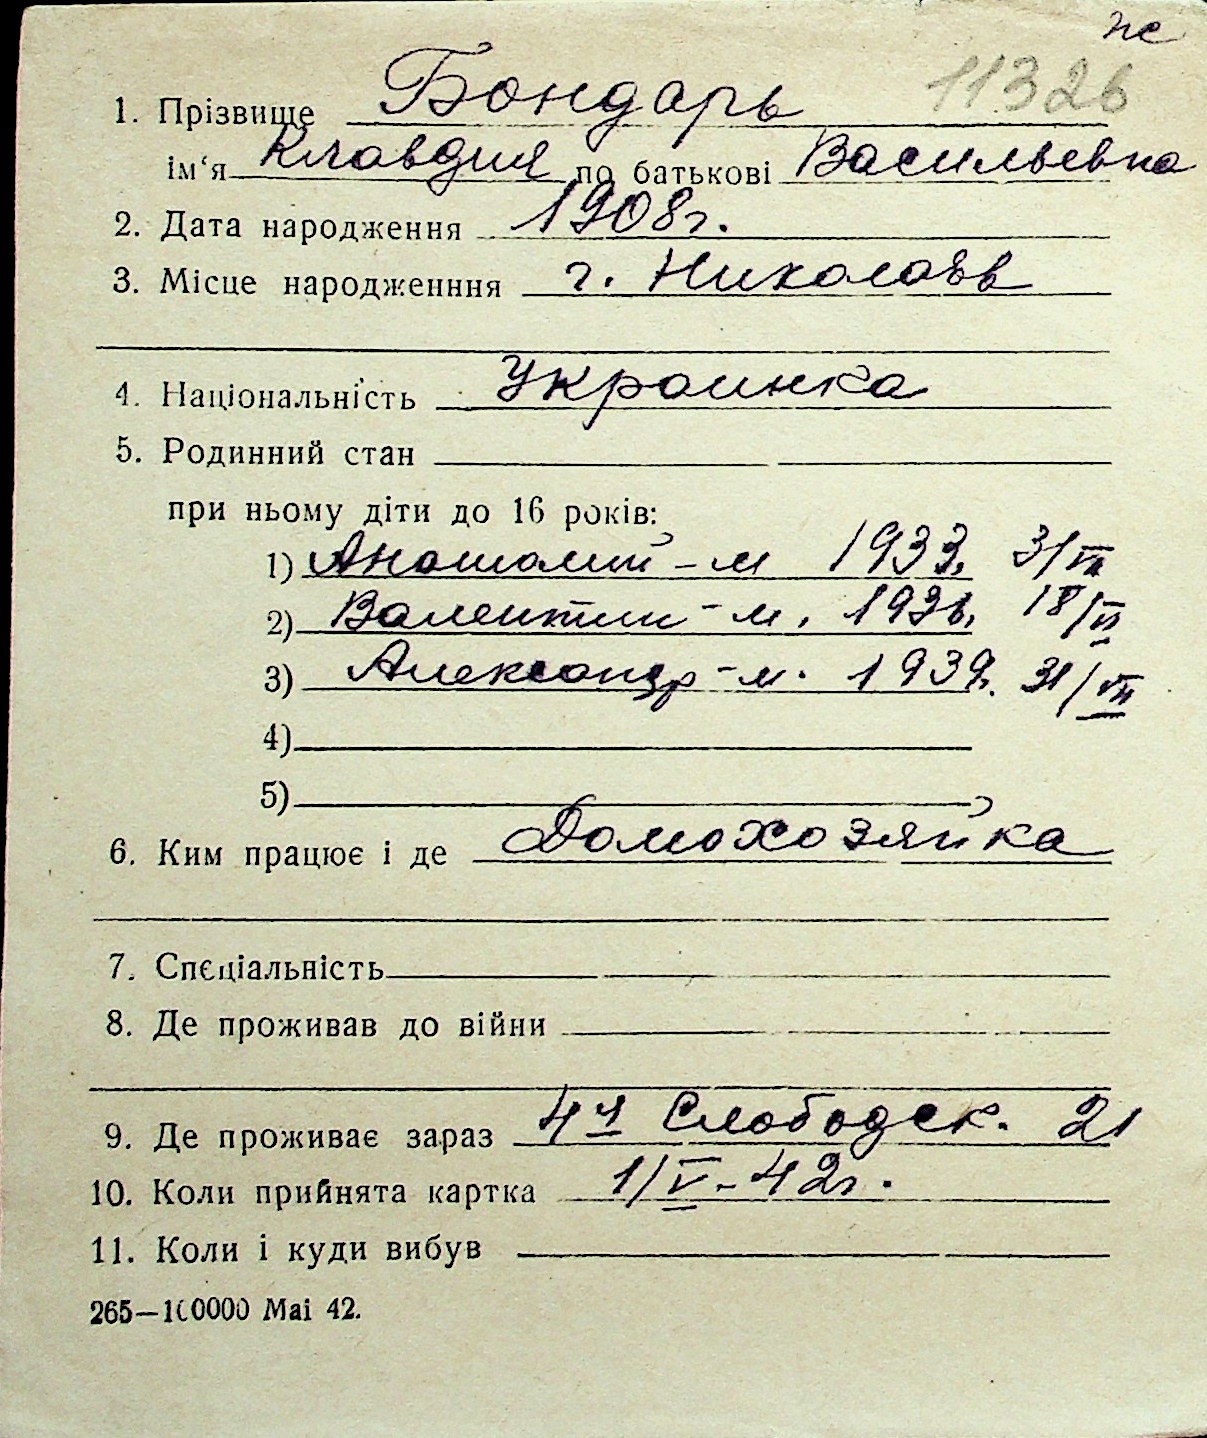 ж
11326
1. Прізвище Бондарь
ім‘я Клавдия по батькові Васильевна
2. Дата народження 1908г.
3. Місце народженння г. Николаев
4. Національність Украинка
5. Родинний стан
при ньому діти до 16 років:
1) Анатолий - м 1933. 31/VII
2) Валентин - м. 1936. 18/VI
3) Александр - м. 1939. 31/VII
4)
5)
6. Ким працює і де Домохозяйка
7. Спєціальність
8. Де проживав до війни
9. Де проживає зараз 4я Слободск. 21
10. Коли прийнята картка 1/V - 42г.
11. Коли і куди вибув
265—100000 Маі 42.